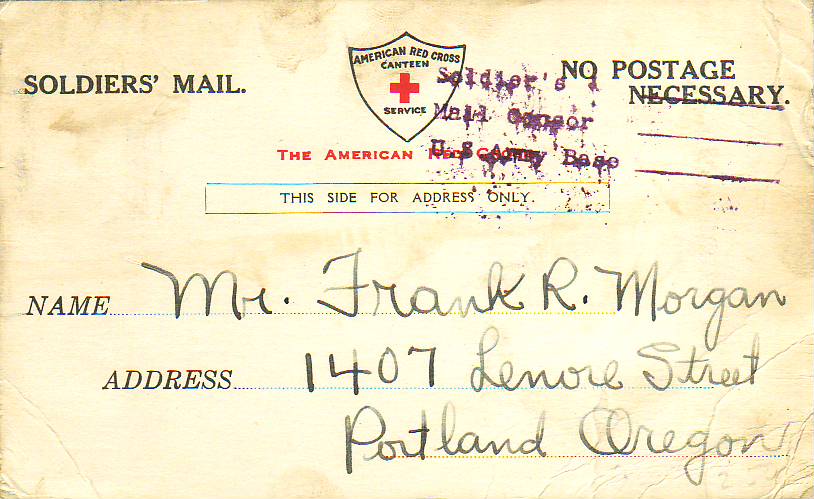 SOLDIERS' MAIL.
AMERICAN RED CROSS
CANTEEN
SERVICE
NO POSTAGE
NECESSARY.
Soldier's
Mail Censor
U.S Army Base
THE AMERICAN RED CROSS
THIS SIDE FOR ADDRESS ONLY.
NAME Mr. Frank R. Morgan
ADDRESS 1407 Lenore Street
Portland Oregon